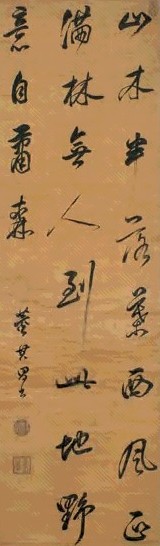 山木半落葉西風正
滿林無人到此地野
意自蕭森
董其昌書